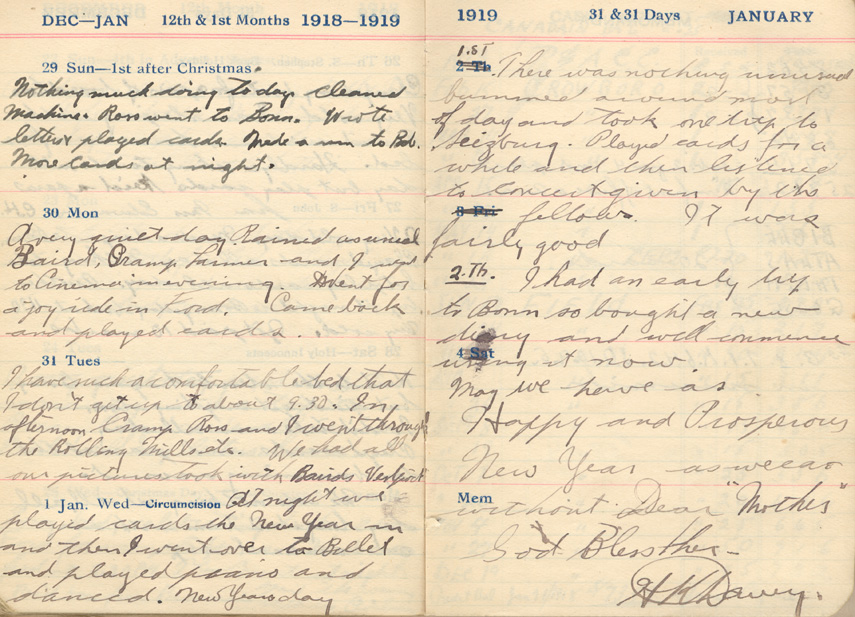 DEC—JAN 12th & 1st Months 1918—1919
29 Sun—1st after Christmas.
Nothing much doing to day. Cleaned
Machine. Ross went to Bonn. Wrote
letters played cards. Made a run to Bob.
More Cards at night.
30 Mon
A very quiet day Rained as usual
Baird, Cramp, Farmer and I went
to Cinema in evening. Went for
a joy ride in Ford. Came back
and played cards.
31 Tues
I have such a comfortable bed that
I don't get up to about 9.30. In
afternoon Cramp Ross and I went through
the Rolling Mills etc. We had all
our pictures took with Bairds Vest
1 Jan. Wed—Circumcision At night we
played cards the New Year in
and then I went over to Billet
and played piano and
danced. New Years day
1919 31 & 31 Days JANUARY
1.ST
2 Th. There was nothing unusual
bummed around most
of day and took one trip to
Seizburg. Played cards for a
while and then listened
to concert given by the
3 Fri fellows. It was
fairly good
2. Th. I had an early trip
to Bonn so bought a new
diary and will commence
4 Sat
using it now.
May we have as
Happy and Prosperous
New Year as we can
Mem
without Dear "Mother"
God Bless her—
HKDavey.